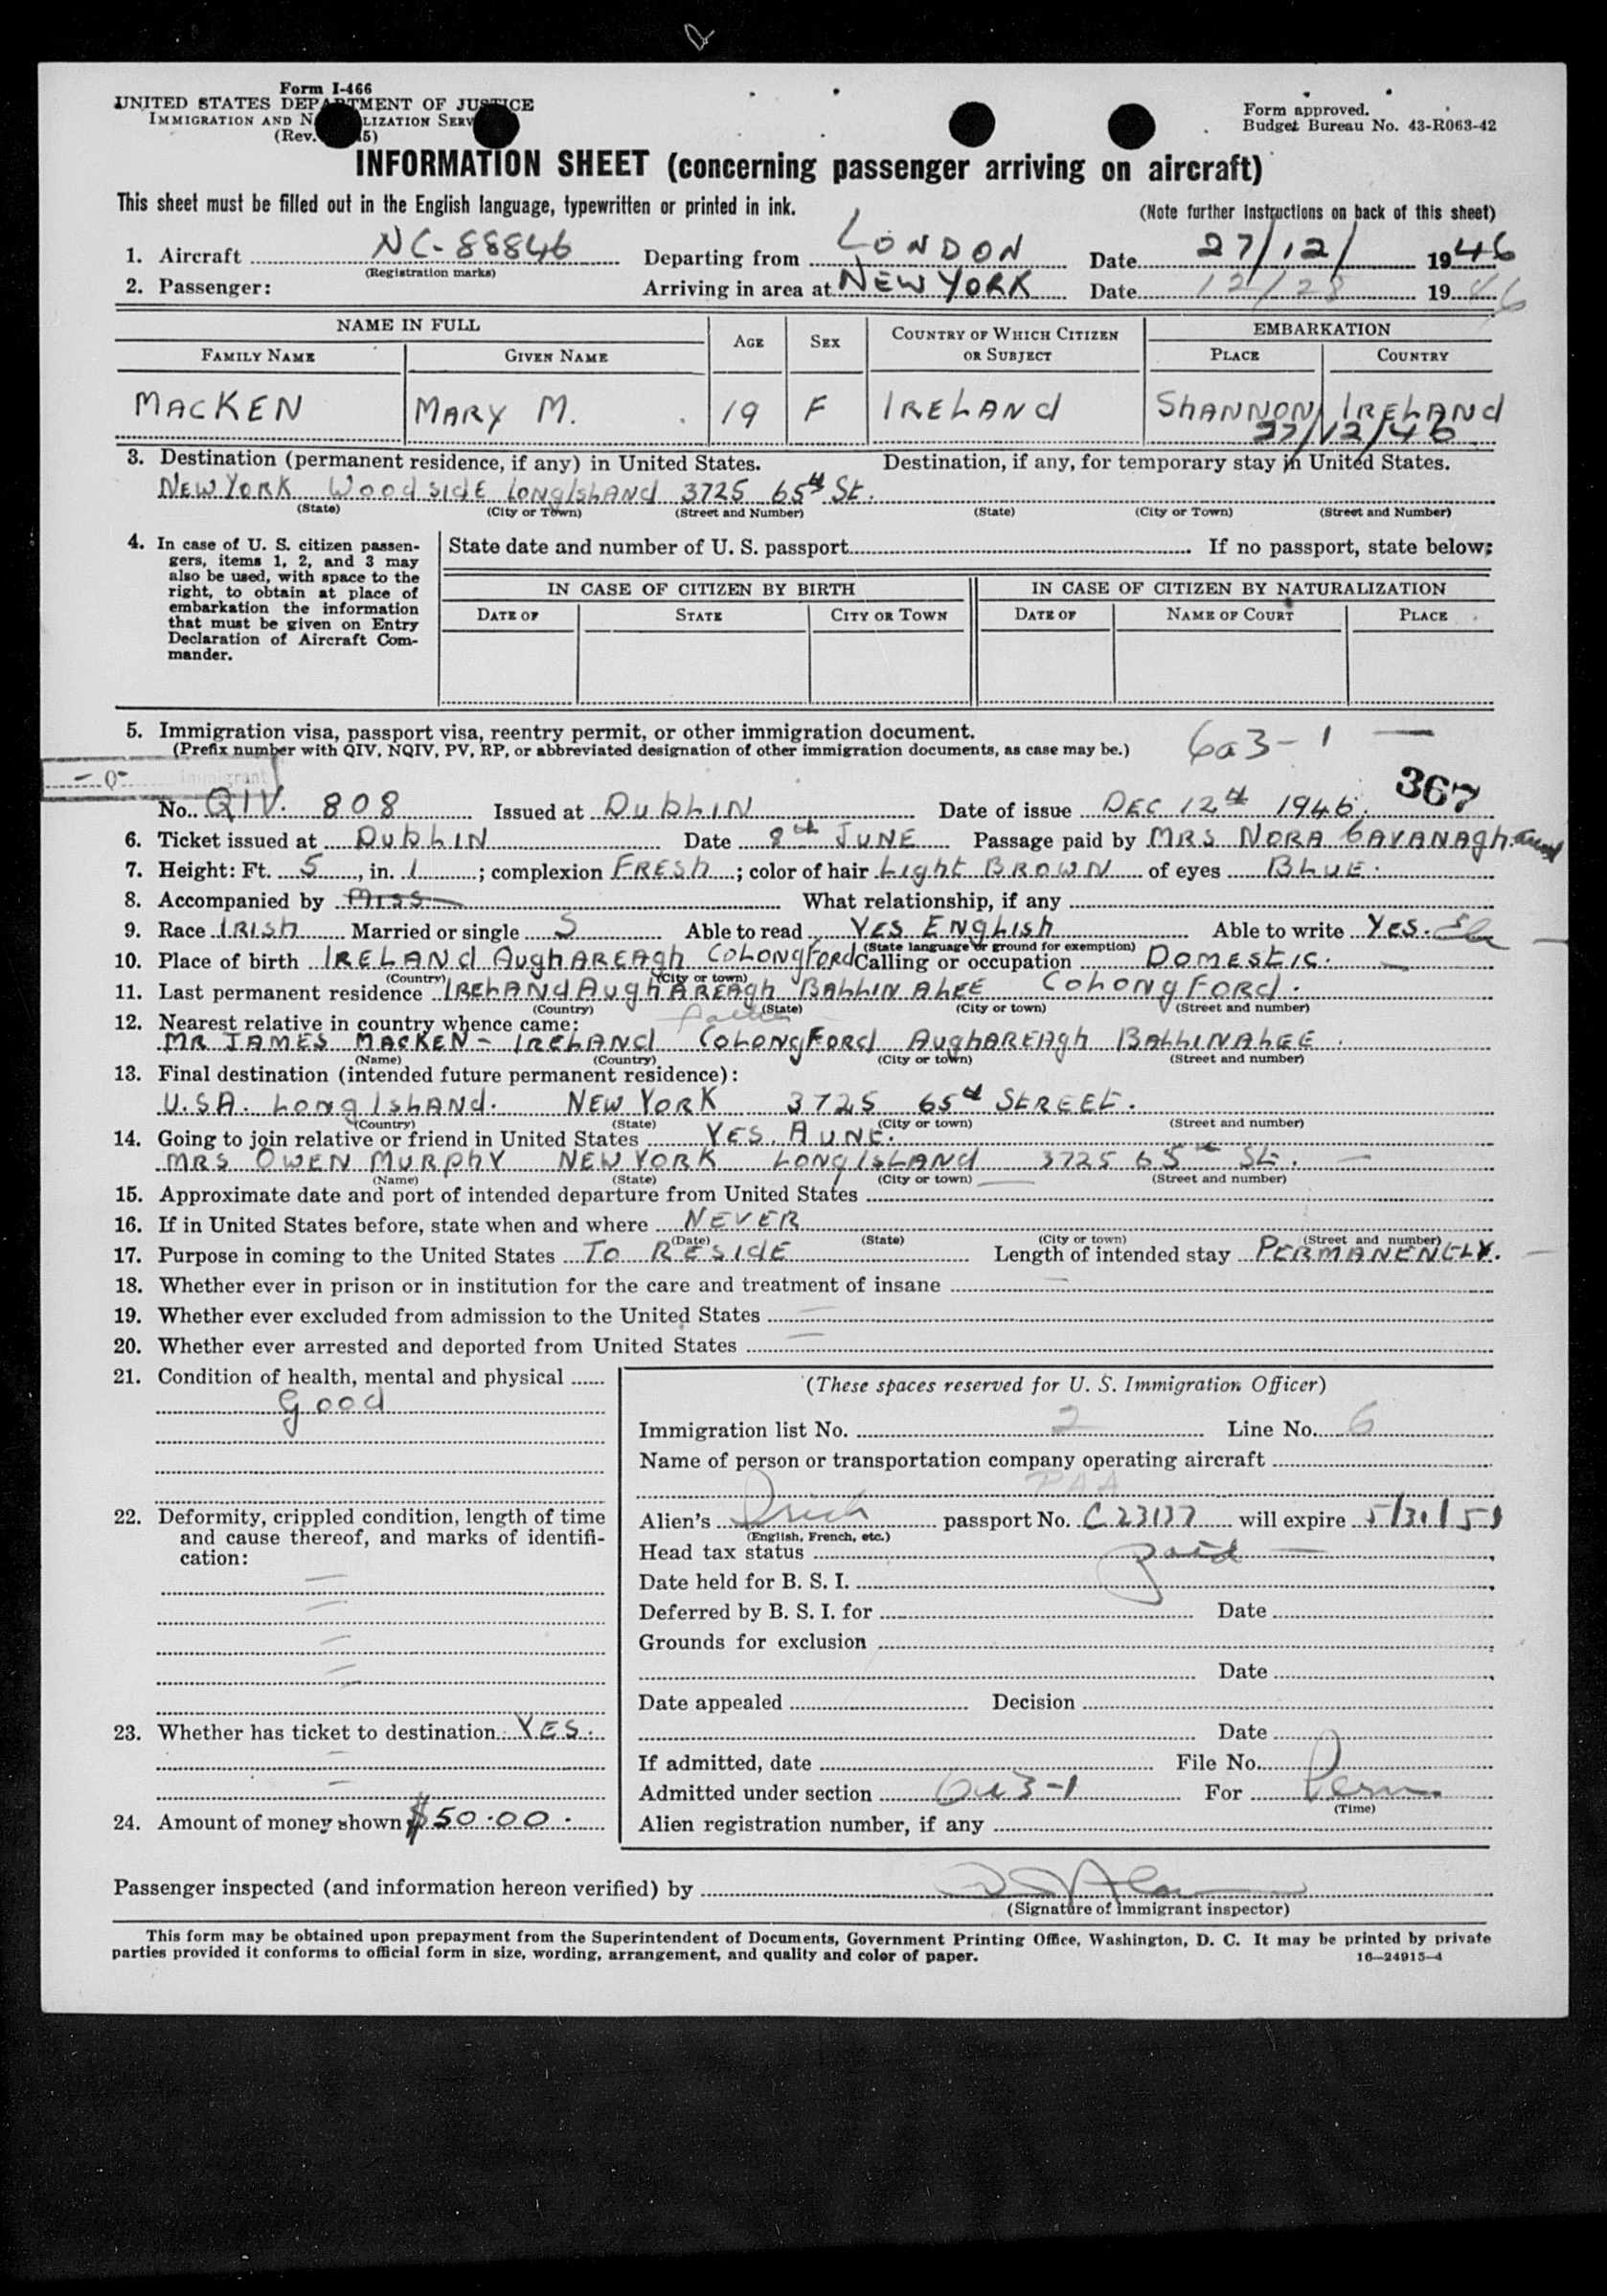 Form I-466
UNITED STATES DEPARTMENT OF JUSTICE
IMMIGRATION AND NATURALIZATION SERV
(Rev. 5)
Form approved.
Budget Bureau No. 43-R063-42
INFORMATION SHEET (concerning passenger arriving on aircraft)
This sheet must be filled out in the English language, typewritten or printed in ink.
(Note further instructions on back of this sheet)
1. Aircraft NC-88846 Departing from LONDON Date 27/12/ 1946
(Registration marks)
2. Passenger: Arriving in area at NEW YORK Date 12/28 1946
NAME IN FULL AGE SEX COUNTRY OF WHICH CITIZEN OR SUBJECT EMBARKATION
FAMILY NAME GIVEN NAME PLACE COUNTRY
MACKEN MARY M. 19 F IRELAND SHANNON IRELAND
27/12/46
3. Destination (permanent residence, if any) in United States. Destination, if any, for temporary stay in United States.
NEW YORK WOODSIDE LONG ISLAND 3725 65th St.
(State) (City or Town) (Street and Number) (State) (City or Town) (Street and Number)
4. In case of U. S. citizen passen-
gers, items 1, 2, and 3 may
also be used, with space to the
right, to obtain at place of
embarkation the information
that must be given on Entry
Declaration of Aircraft Com-
mander.
State date and number of U. S. passport If no passport, state below:
IN CASE OF CITIZEN BY BIRTH IN CASE OF CITIZEN BY NATURALIZATION
DATE OF STATE CITY OR TOWN DATE OF NAME OF COURT PLACE
5. Immigration visa, passport visa, reentry permit, or other immigration document.
(Prefix number with QIV, NQIV, PV, RP, or abbreviated designation of other immigration documents, as case may be.) 6a3-1
-0- Immigrant
367
No. QIV. 808 Issued at DUBLIN Date of issue DEC 12th 1946.
6. Ticket issued at DUBLIN Date 8th JUNE Passage paid by MRS NORA CAVANAGH. aunt
7. Height: Ft. 5, in. 1; complexion FRESH; color of hair Light BROWN of eyes BLUE.
8. Accompanied by MISS What relationship, if any
9. Race IRISH Married or single S Able to read YES ENGLISH Able to write YES.
(State language or ground for exemption)
10. Place of birth IRELAND AughAREAgh COLONGFORD Calling or occupation DOMESTIC.
(Country) (City or town)
11. Last permanent residence IRELAND AughAREAgh BALLINALEE COLONGFORD.
(Country) (State) (City or town) (Street and number)
12. Nearest relative in country whence came: father
MR JAMES MACKEN - IRELAND COLONGFORD AughAREAgh BALLINALEE.
(Name) (Country) (City or town) (Street and number)
13. Final destination (intended future permanent residence):
U.S.A. LONG ISLAND. NEW YORK 3725 65th STREET.
(Country) (State) (City or town) (Street and number)
14. Going to join relative or friend in United States YES, AUNT.
MRS OWEN MURPHY NEW YORK LONG ISLAND 3725 65th St.
(Name) (State) (City or town) (Street and number)
15. Approximate date and port of intended departure from United States
16. If in United States before, state when and where NEVER
(Date) (State) (City or town) (Street and number)
17. Purpose in coming to the United States TO RESIDE Length of intended stay PERMANENTLY.
18. Whether ever in prison or in institution for the care and treatment of insane
19. Whether ever excluded from admission to the United States
20. Whether ever arrested and deported from United States
21. Condition of health, mental and physical
Good
22. Deformity, crippled condition, length of time
and cause thereof, and marks of identifi-
cation:
23. Whether has ticket to destination YES.
24. Amount of money shown $50.00.
(These spaces reserved for U. S. Immigration Officer)
Immigration list No. 2 Line No. 6
Name of person or transportation company operating aircraft
PAA
Alien's Irish passport No. C23137 will expire 5/31/51
(English, French, etc.)
Head tax status paid
Date held for B. S. I.
Deferred by B. S. I. for Date
Grounds for exclusion
Date
Date appealed Decision
Date
If admitted, date File No.
Admitted under section 6a3-1 For Perm.
(Time)
Alien registration number, if any
Passenger inspected (and information hereon verified) by
(Signature of immigrant inspector)
This form may be obtained upon prepayment from the Superintendent of Documents, Government Printing Office, Washington, D. C. It may be printed by private
parties provided it conforms to official form in size, wording, arrangement, and quality and color of paper. 16—24915-4